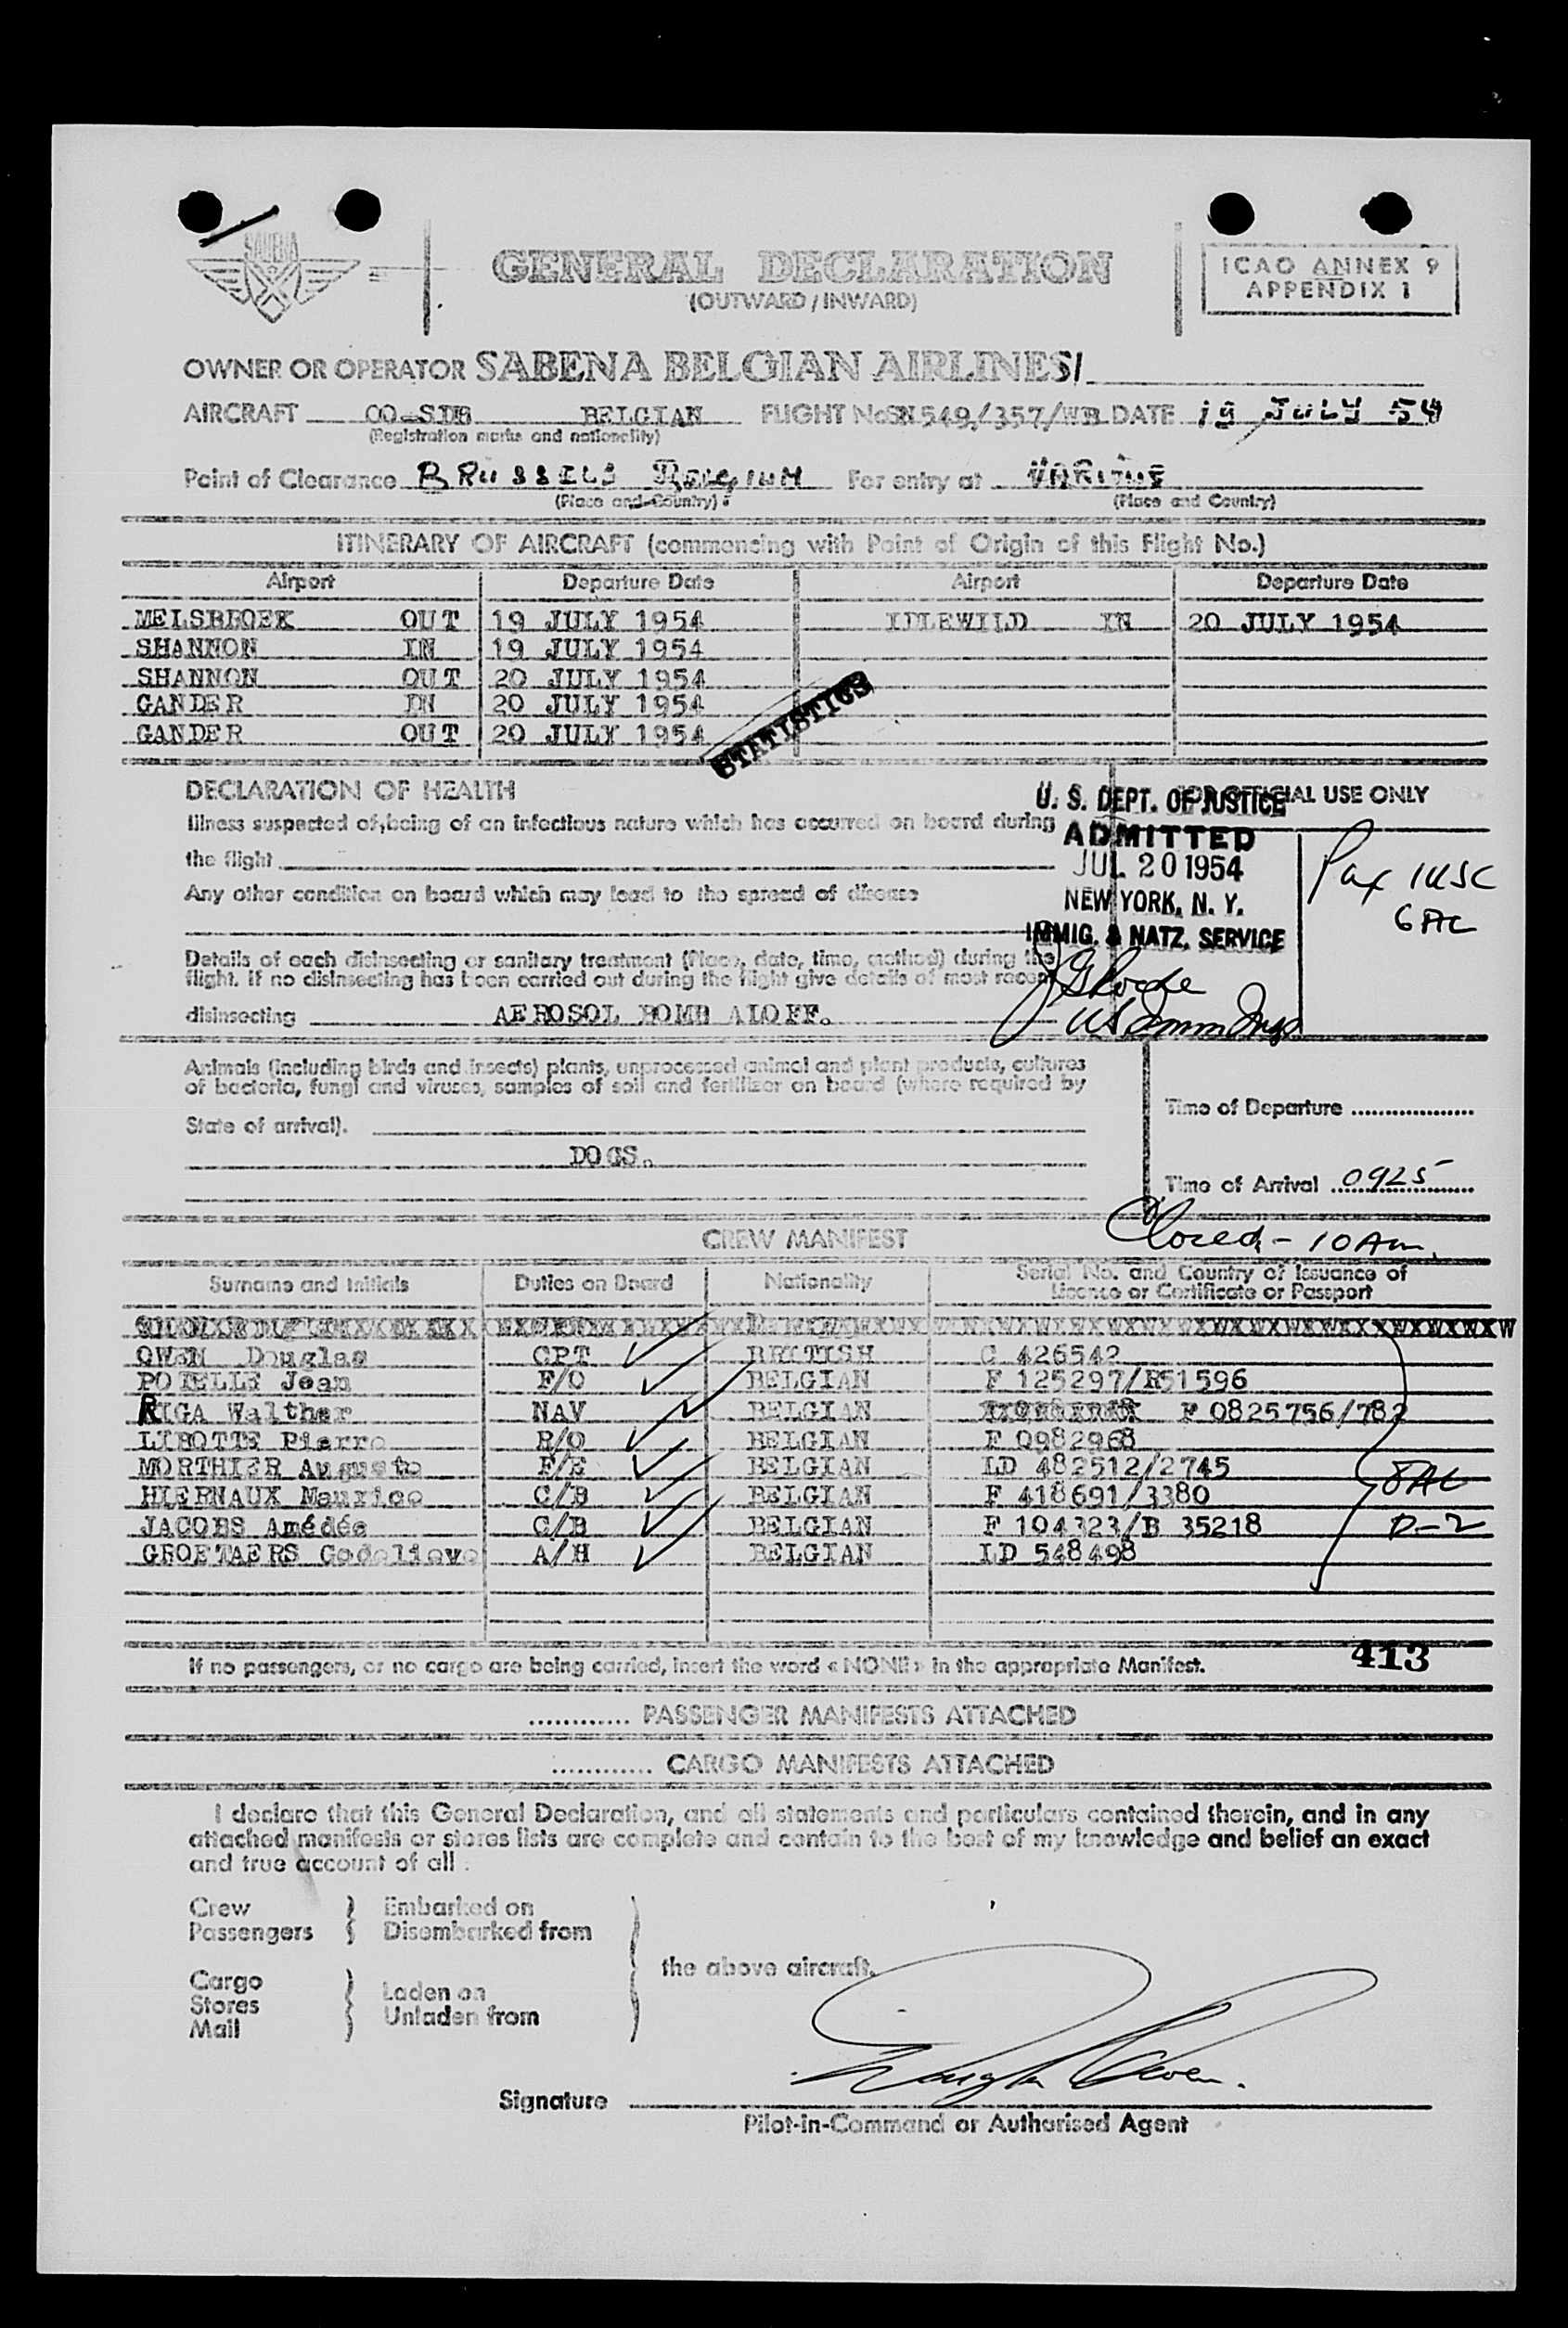 SABENA
GENERAL DECLARATION
(OUTWARD / INWARD)
ICAO ANNEX 9
APPENDIX 1
OWNER OR OPERATOR SABENA BELGIAN AIRLINES
AIRCRAFT OO-SDB BELGIAN FLIGHT No SN 549/357/WB DATE 19 JULY 54
(Registration marks and nationality)
Point of Clearance BRUSSELS BELGIUM For entry at
(Place and Country) (Place and Country)
ITINERARY OF AIRCRAFT (commencing with Point of Origin of this Flight No.)
Airport Departure Date Airport Departure Date
MELSBROEK OUT 19 JULY 1954 IDLEWILD IN 20 JULY 1954
SHANNON IN 19 JULY 1954
SHANNON OUT 20 JULY 1954
GANDER IN 20 JULY 1954
GANDER OUT 20 JULY 1954
STATISTICS
DECLARATION OF HEALTH
FOR OFFICIAL USE ONLY
Illness suspected of being of an infectious nature which has occurred on board during
the flight
Any other condition on board which may lead to the spread of disease
U. S. DEPT. OF JUSTICE
ADMITTED
JUL 20 1954
NEW YORK, N. Y.
IMMIG. & NATZ. SERVICE
Pax 1USC
6 AC
Details of each disinsecting or sanitary treatment (Place, date, time, method) during the
flight. If no disinsecting has been carried out during the flight give details of most recent
disinsecting AEROSOL BOMB ALOFF.
US Immig Insp
Animals (including birds and insects) plants, unprocessed animal and plant products, cultures
of bacteria, fungi and viruses, samples of soil and fertilizer on board (where required by
State of arrival).
DOGS.
Time of Departure
Time of Arrival 0925
Closed - 10 Am.
CREW MANIFEST
Surname and Initials Duties on Board Nationality Serial No. and Country of Issuance of
Licence or Certificate or Passport
OWEN Douglas CPT BRITISH C 426542
POTELLE Jean F/O BELGIAN F 125297/R51596
RIGA Walther NAV BELGIAN F 0825756/782
LIBOTTE Pierre R/O BELGIAN F 0982968
MORTHIER Auguste F/E BELGIAN LD 482512/2745
HIERNAUX Maurice C/B BELGIAN F 418691/3380
JACOBS Amédée C/B BELGIAN F 104323/B 35218
GROETAERS Godelieve A/H BELGIAN LD 548498
8AC
D-2
If no passengers, or no cargo are being carried, insert the word « NONE » in the appropriate Manifest.
413
............ PASSENGER MANIFESTS ATTACHED
............ CARGO MANIFESTS ATTACHED
I declare that this General Declaration, and all statements and particulars contained therein, and in any
attached manifests or stores lists are complete and contain to the best of my knowledge and belief an exact
and true account of all :
Crew Embarked on
Passengers Disembarked from
the above aircraft.
Cargo
Stores Laden on
Mail Unladen from
Douglas Owen.
Signature
Pilot-in-Command or Authorised Agent